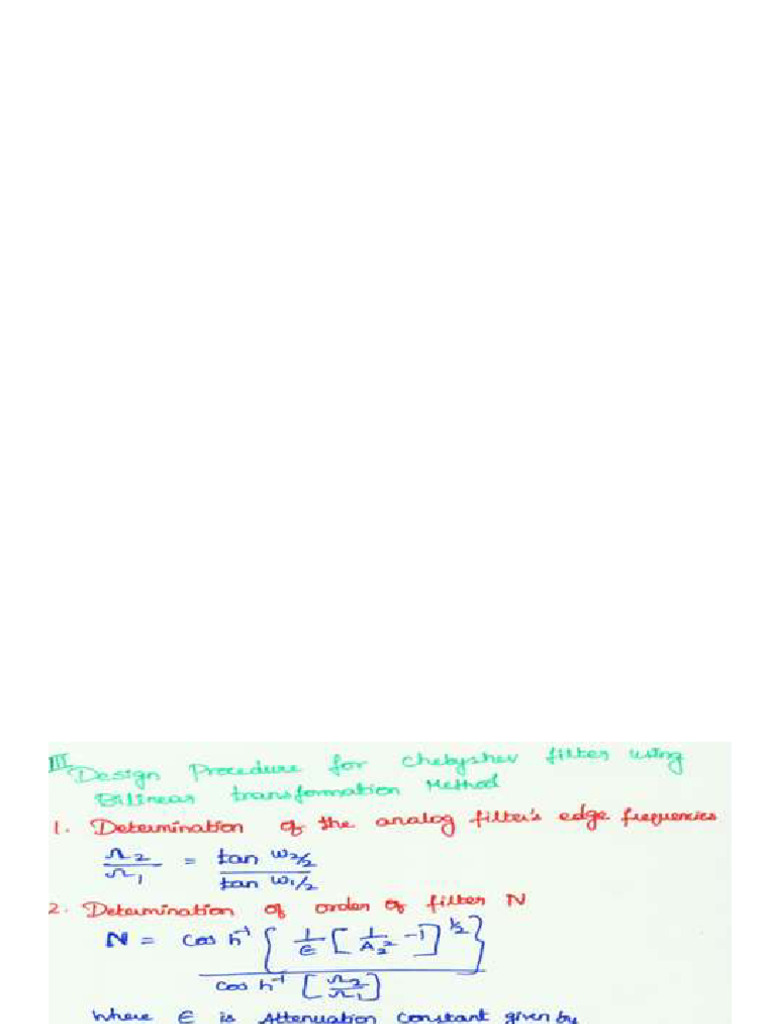 III. Design Procedure for Chebyshev filter using
Bilinear transformation Method
1. Determination of the analog filter's edge frequencies
Ω2/Ω1 = tan ω2/2 / tan ω1/2
2. Determination of order of filter N
N = cos h⁻¹ { 1/ε [ 1/A2² -1 ]^1/2 } / cos h⁻¹ [ Ω2/Ω1 ]
Where ε is Attenuation constant given by